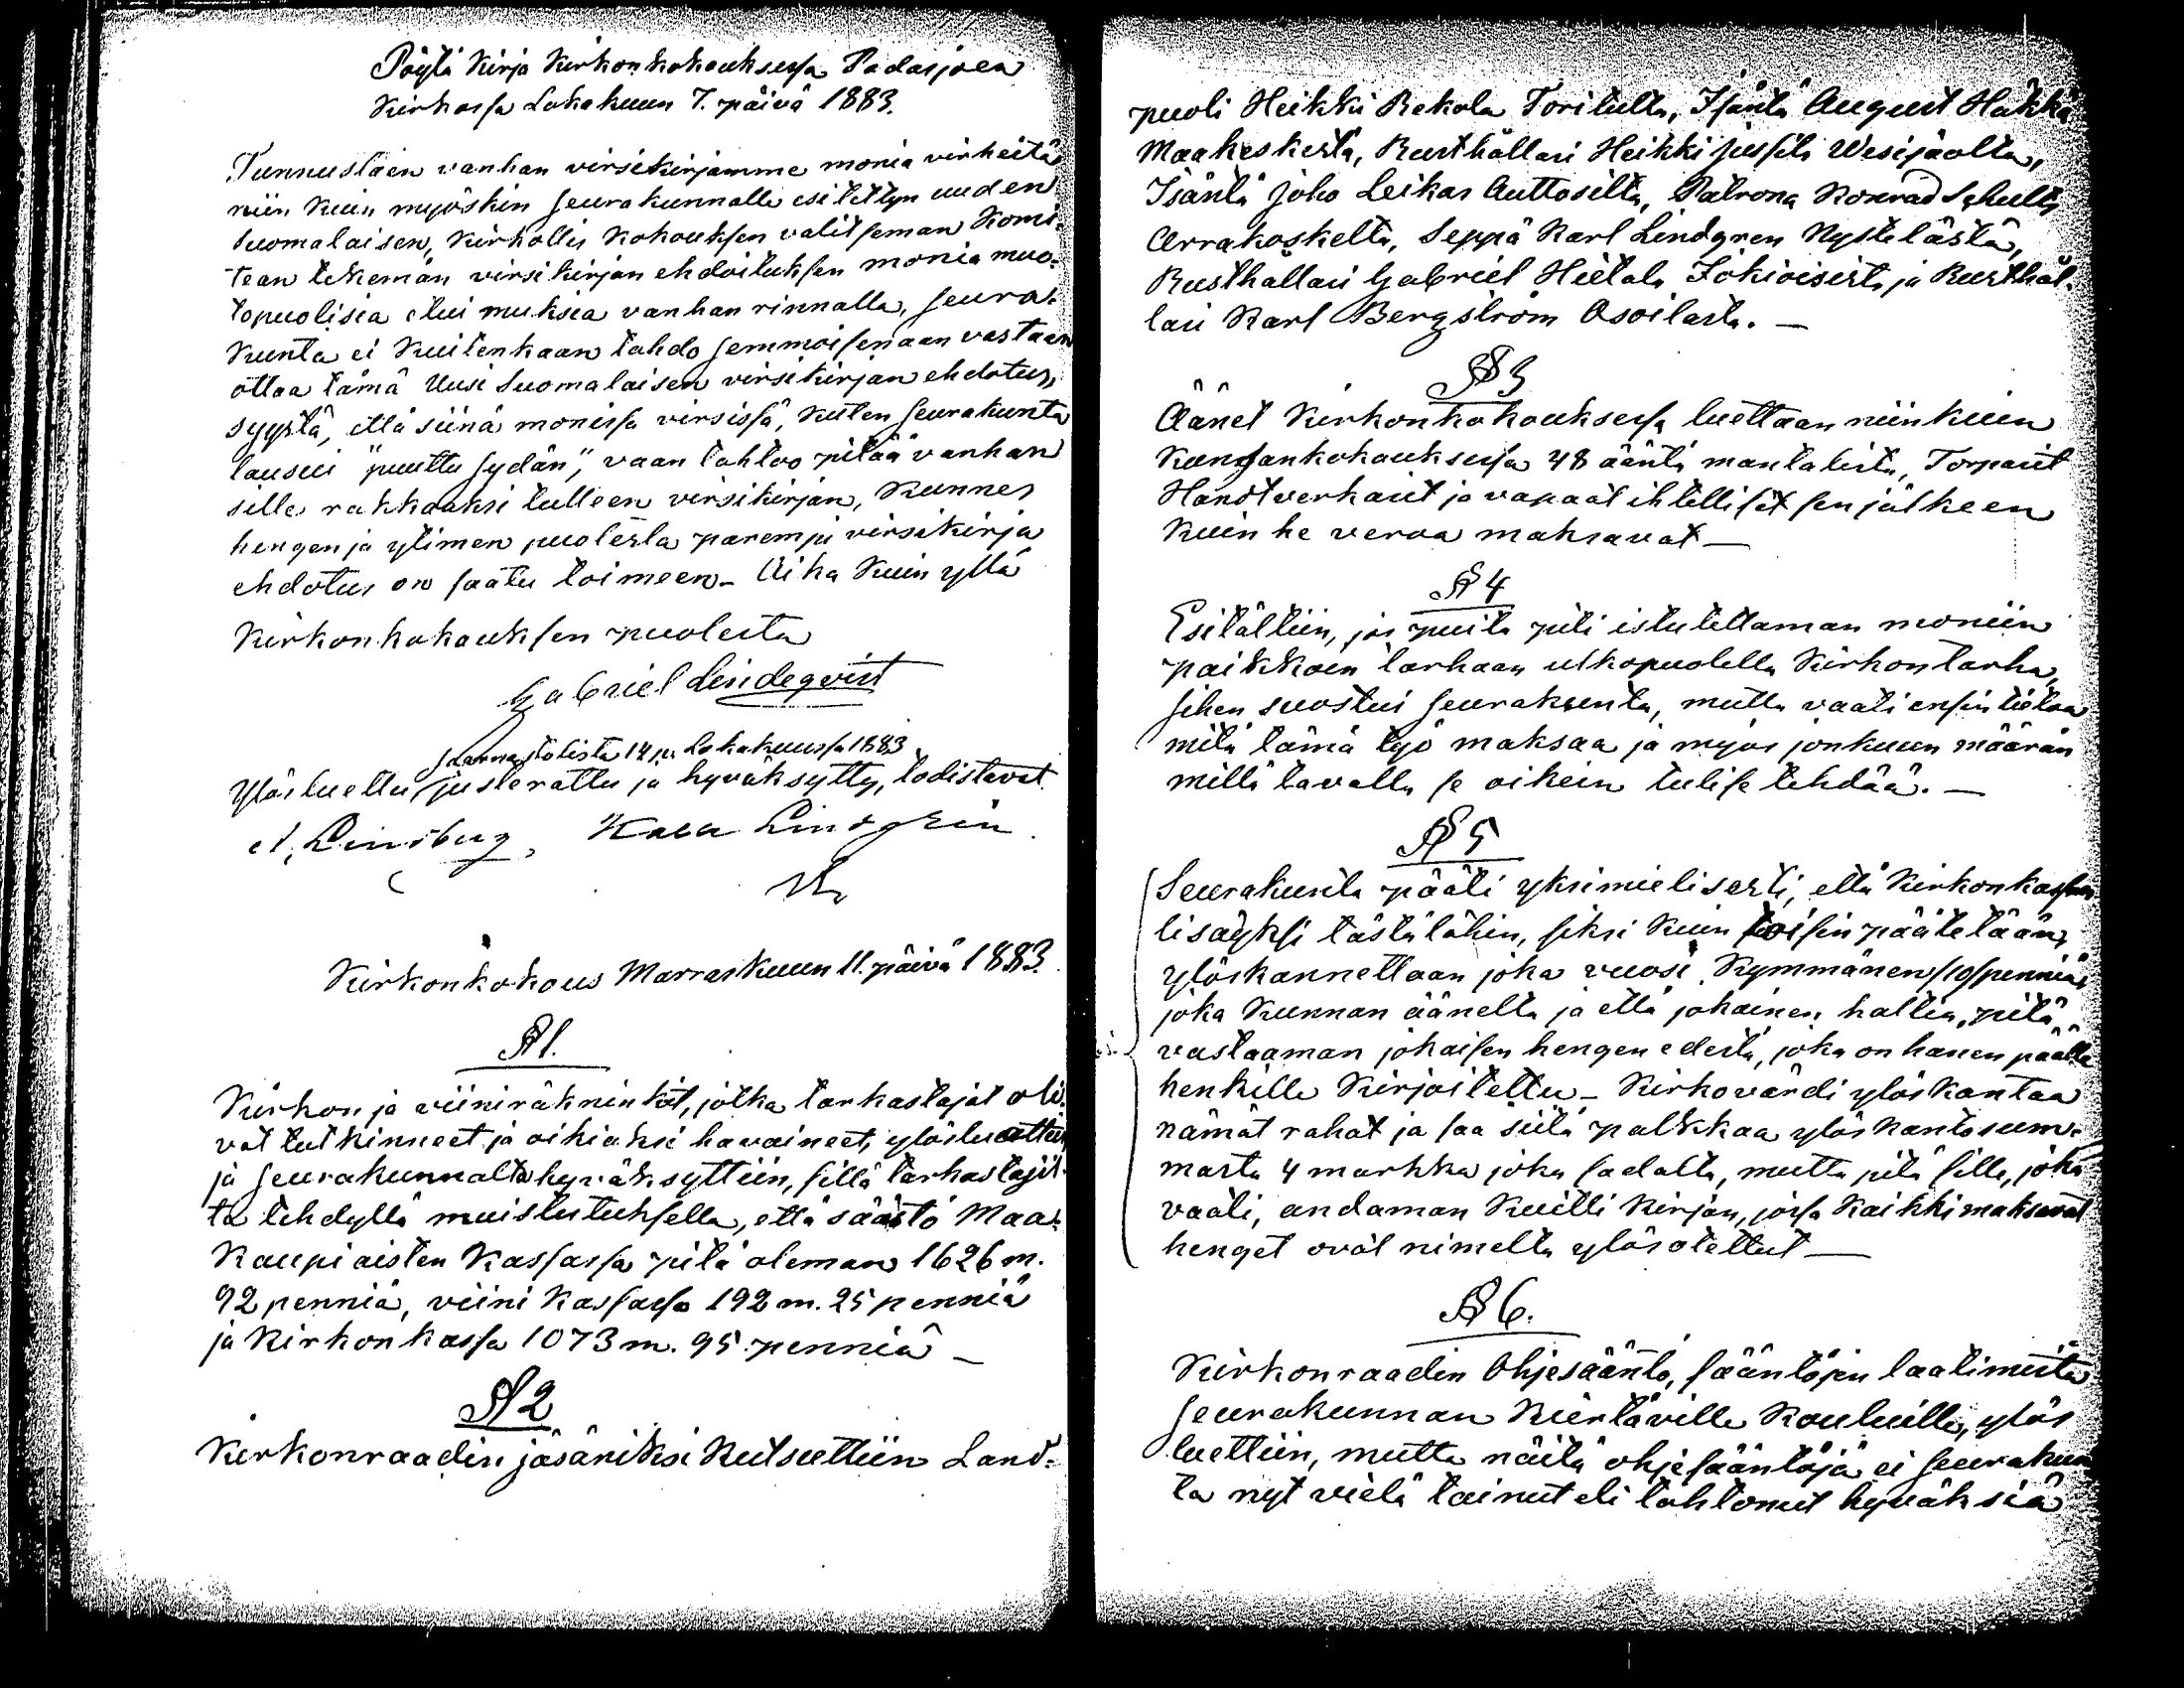 Pöytä Kirja Kirkonkokouksessa Padasjoen
Kirkossa Lokakuun 7. päivä 1883.
Tunnustaen vanhan virsikirjamme monia virheitä,
niin kuin myöskin seurakunnalle esitettyn uuden
Suomalaisen, Kirkollis Kokouksen valitseman Komi-
tean tekemän virsikirjan ehdoituksen monia muo-
topuolisia etuimuksia vanhan rinnalla, seura-
kunta ei kuitenkaan tahdo semmoisenaan vastaan
ottaa tämä Uusi Suomalaisen virsikirjan ehdotus,
syystä, että siinä monissa virsissä, kuten seurakunta
lausui "puuttu sydän", vaan tahtoo pitää vanhan
sille rakkaaksi tulleen virsikirjan, kunnes
hengen ja ytimen puolesta parempi virsikirja
ehdotus on saatu toimeen. Aika kuin yllä
Kirkonkokouksen puolesta
Gabriel Lindeqvist
saarnastolista 14 p. Lokakuussa 1883
Ylösluettu, justerattu ja hyväksytty, todistavat.
Lindgrén
Kirkonkokous Marraskuun 11. päivä 1883.
§ 1.
Kirkon ja viiniräkninkit, jotka tarkastajat oli-
vat tutkinneet ja oikiaksi havaineet, ylösluettiin
ja seurakunnalta hyväksyttiin, sillä tarkastajil-
ta tehdyllä muistutuksella, että säästö Maa-
Kaupiaisten Kassassa pitä oleman 1626 m.
92 penniä, viini Kassassa 192 m. 25 penniä
ja Kirkon kassa 1073 m. 95 penniä –
§ 2
Kirkonraadin jäsäniksi Kutsuttiin Land-
puoli Heikki Rekola Toritulta, Isäntä August Hakka
Maakeskestä, Rusthållari Heikki Jussila Wesijaolta,
Isäntä Joho Leikas Auttosilta, Patrona Konrad Schultz
Arrakoskelta, Seppä Karl Lindgren Nystelästä,
Rusthållari Gabriel Hietala Jokioisista ja Rusthål-
lari Karl Bergström Osoilasta. —
§ 3
Äänet Kirkonkokouksessa luettaan niinkuin
Kunsankokouksessa 48 ääntä mantalista, Torparit
Handtverkarit ja vapaat ihtelliset sen jälkeen
kuin he veroa maksavat —
§ 4
Esitältiin, jos puita piti istutettaman moniin
paikkoin tarhaan ulkopuolella Kirkontarha,
sihen suostui seurakunta, mutta vaati ensin tietaa
mitä tämä työ maksaa ja myös jonkuun määrän
millä tavalla se oikein tulise tehdää. —
§ 5
Seurakunta pääti yksimielisesti, että Kirkonkassan
lisäyksi tästälähin, siksi kuin toisin päätetään,
ylöskannettaan joka vuosi Kymmänen /10/ penniä
joka Kunnan äänelta ja että jokainen haltia, pitä
vastaaman johaisen hengen edestä, joka on hanen päälle
henkille Kirjoitettu – Kirkovärdi ylöskantaa
nämät rahat ja saa siitä palkkaa ylöskantosum-
masta 4 markka joka sadalta, mutta pitä sille, joka
vaati, andaman Kuitti kirjan, jossa kaikki maksavat
henget ovat nimelta ylösotettut —
§ 6.
Kirkonraadin Ohjesääntö, sääntöjen laatimista
seurakunnan Kiertäville Kouluille, ylös
luettiin, mutta näitä ohjesääntöjä ei seurakun
ta nyt vielä tainut eli tahtonut hyväksiä